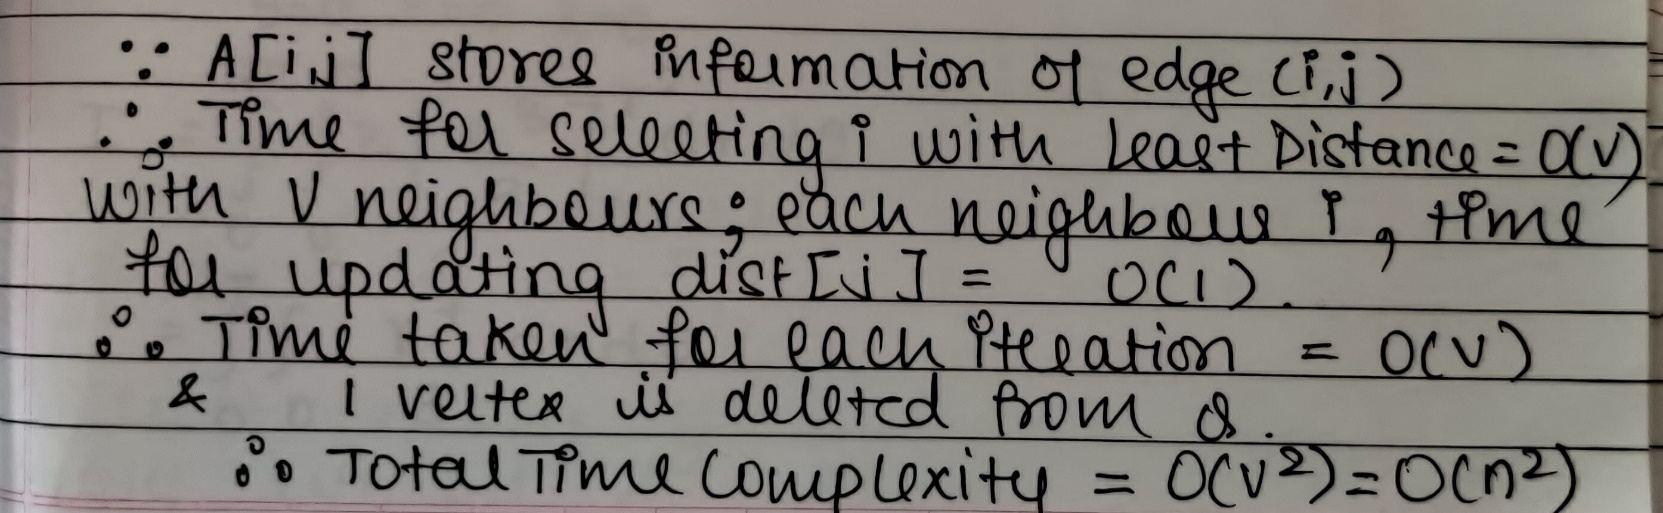 ∵ A[i,j] stores information of edge (i,j)
∴ Time for selecting i with Least Distance = O(V)
with V neighbours; each neighbour i, time
for updating dist[j] = O(1).
∴ Time taken for each iteration = O(V)
& 1 vertex is deleted from Q.
∴ Total Time Complexity = O(V²) = O(n²)